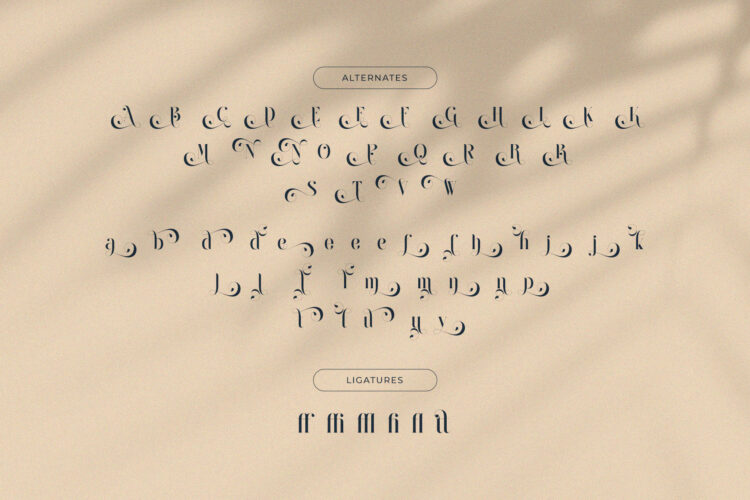 ALTERNATES
A B C D E E F G H L K K
M N N O P Q R R R
S T V W
a b d d e e e e f f h h i j k
l l
m m n n p
t t u y y
LIGATURES
ff ffi fff fi fl